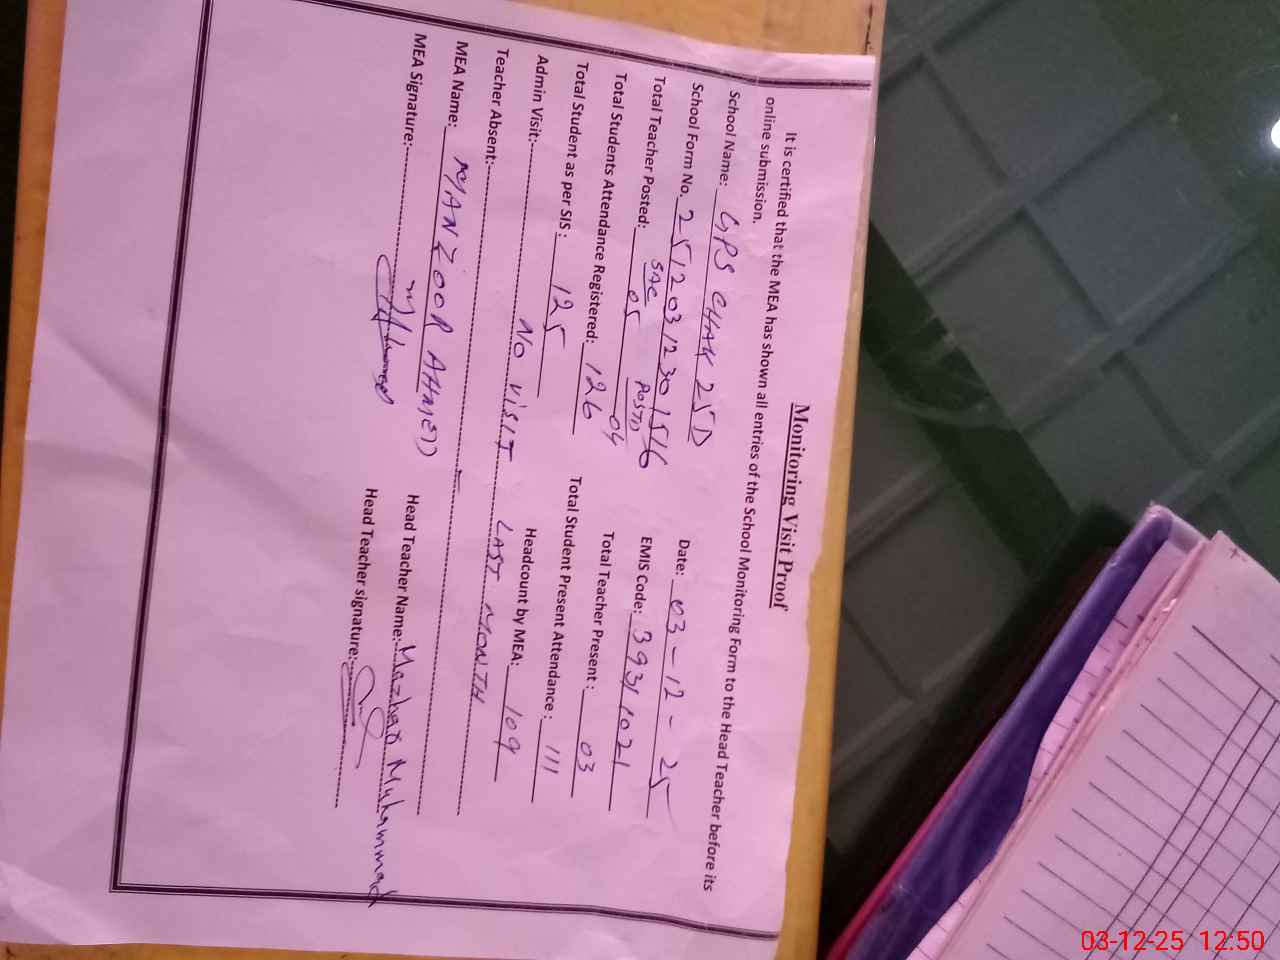 Monitoring Visit Proof
It is certified that the MEA has shown all entries of the School Monitoring Form to the Head Teacher before its
online submission.
School Name: GPS CHAK 25D Date: 03-12-25
School Form No. 25120312301516 EMIS Code: 39311021
SAC POSTD
Total Teacher Posted: 05 04 Total Teacher Present : 03
Total Students Attendance Registered: 126 Total Student Present Attendance : 111
Total Student as per SIS : 125 Headcount by MEA: 109
Admin Visit: NO VISIT LAST MONTH
Teacher Absent:
MEA Name: MANZOOR AHMED Head Teacher Name: Mazhar Muhammad
MEA Signature: Head Teacher signature:
03-12-25 12:50